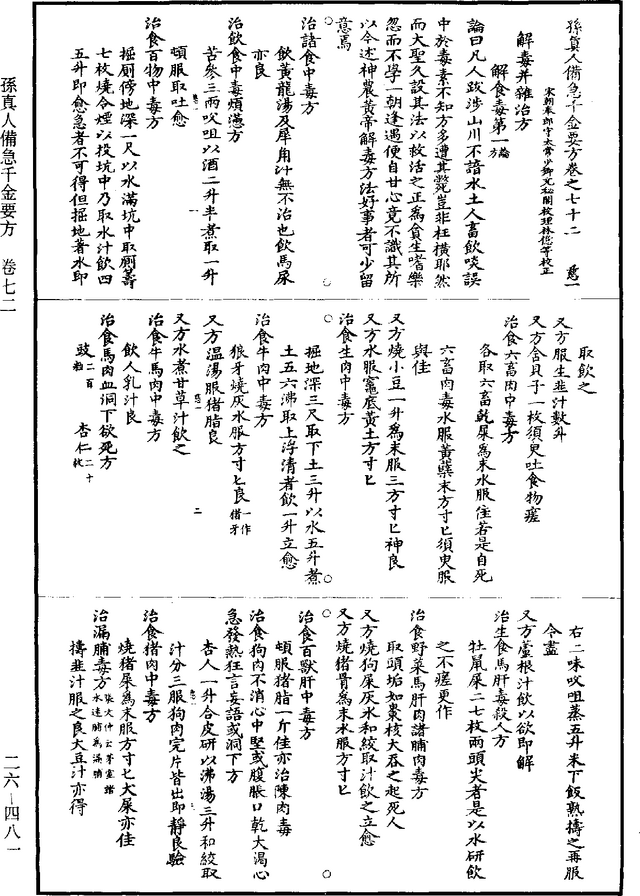 孫真人備急千金要方卷之七十二　惫一
宋朝奉郎守太常少卿充秘閣校理林億等校正
解毒并雜治方
解食毒第一論方
論曰凡人跋涉山川不諳水土人畜飲啖誤
中於毒素不知方多遭其斃豈非枉橫耶然
而大聖久設其法以救活之正為貪生嗜樂
忽而不學一朝逢遇便自甘心竟不識其所
以今述神農黃帝解毒方法好事者可少留
意焉
治諸食中毒方
飲黃龍湯及犀角汁無不治也飲馬尿
亦良
治飲食中毒煩懣方
苦參三兩㕮咀以酒二升半煮取一升
頓服取吐愈
治食百物中毒方
掘廁傍地深一尺以水滿坑中取廁籌
七枚燒令煙以投坑中乃取水汁飲四
五升即愈急者不可得但掘地著水即
取飲之
又方服生韭汁數升
又方含貝子一枚須臾吐食物瘥
治食六畜肉中毒方
各取六畜乾屎為末水服佳若是自死
六畜肉毒水服黃蘗末方寸匕須臾服
與佳
又方燒小豆一升為末服三方寸匕神良
又方水服竈底黃土方寸匕
治食生肉中毒方
掘地深三尺取下土三升以水五升煮
土五六沸取上浮清者飲一升立愈
治食牛肉中毒方
狼牙燒灰水服方寸匕良一作猪牙
又方溫湯服猪脂良
又方水煮甘草汁飲之
治食牛馬肉中毒方
飲人乳汁良
治食馬肉血洞下欲死方
豉二百粒　杏仁二十枚
右二味㕮咀蒸五升米下飯熟擣之再服
令盡
又方蘆根汁飲以欲即解
治生食馬肝毒殺人方
牡鼠屎二七枚兩頭尖者是以水研飲
之不瘥更作
治食野菜馬肝肉諸脯肉毒方
取頭垢如棗核大吞之起死人
又方燒狗屎灰水和絞取汁飲之立愈
又方燒猪骨為末水服方寸匕
治食百獸肝中毒方
頓服猪脂一斤佳亦治陳肉毒
治食狗肉不消心中堅或腹脹口乾大渴心
急發熱狂言妄語或洞下方
杏人一升合皮研以沸湯三升和絞取
汁分三服狗肉完片皆出即靜良驗
治食猪肉中毒方
燒猪屎為末服方寸匕犬屎亦佳
治漏脯毒方張文仲云茅室諸水迷脯為漏脯
擣韭汁服之良大豆汁亦得
孫真人備急千金要方　卷七二
二六—四八一